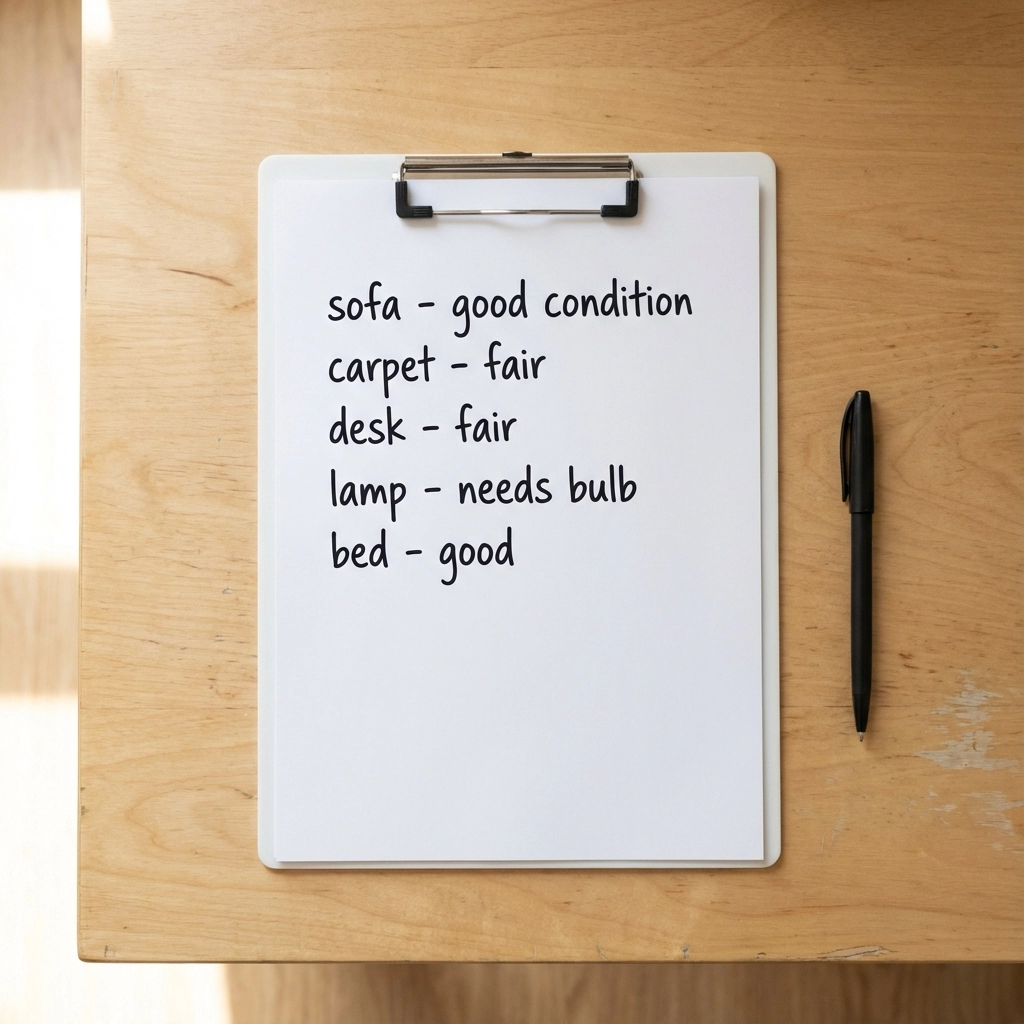 sofa – good condition
carpet – fair
desk – fair
lamp – needs bulb
bed – good